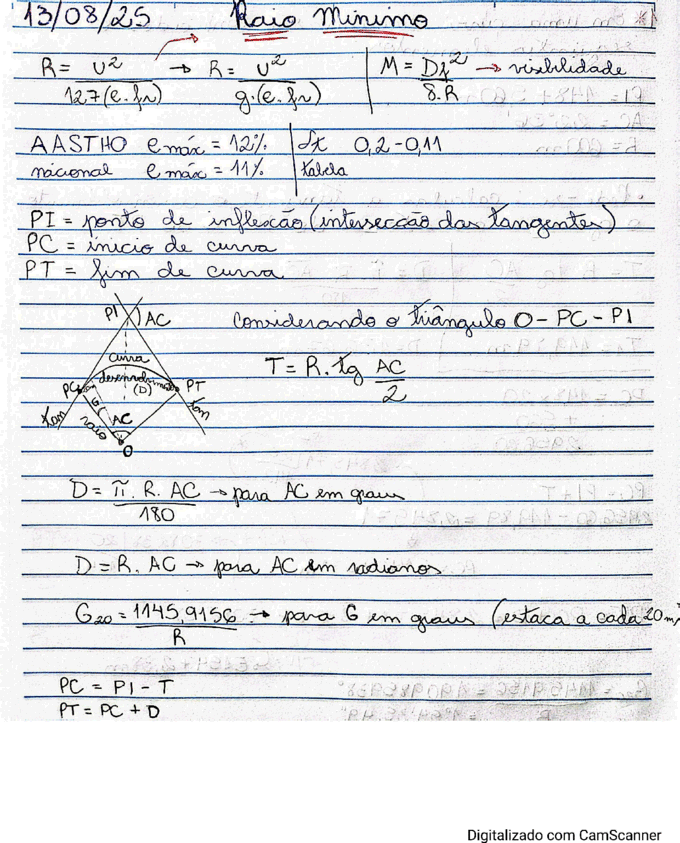 13/08/25 Raio Mínimo
R = v² / 127(e.fr) → R = v² / g.(e.fr) | M = Df² / 8.R → visibilidade
AASTHO e máx = 12% | ft 0,2 - 0,11
nacional e máx = 11% | tabela
PI = ponto de inflexão (intersecção das tangentes)
PC = inicio de curva
PT = fim de curva
PI AC
considerando o triângulo O - PC - PI
T = R. tg AC/2
curva
desenvolvimento (D)
PC PT
G AC
tan raio tan
O
D = π. R. AC / 180 → para AC em graus
D = R. AC → para AC em radianos
G20 = 1145,9156 / R → para G em graus (estaca a cada 20m)
PC = PI - T
PT = PC + D
Digitalizado com CamScanner